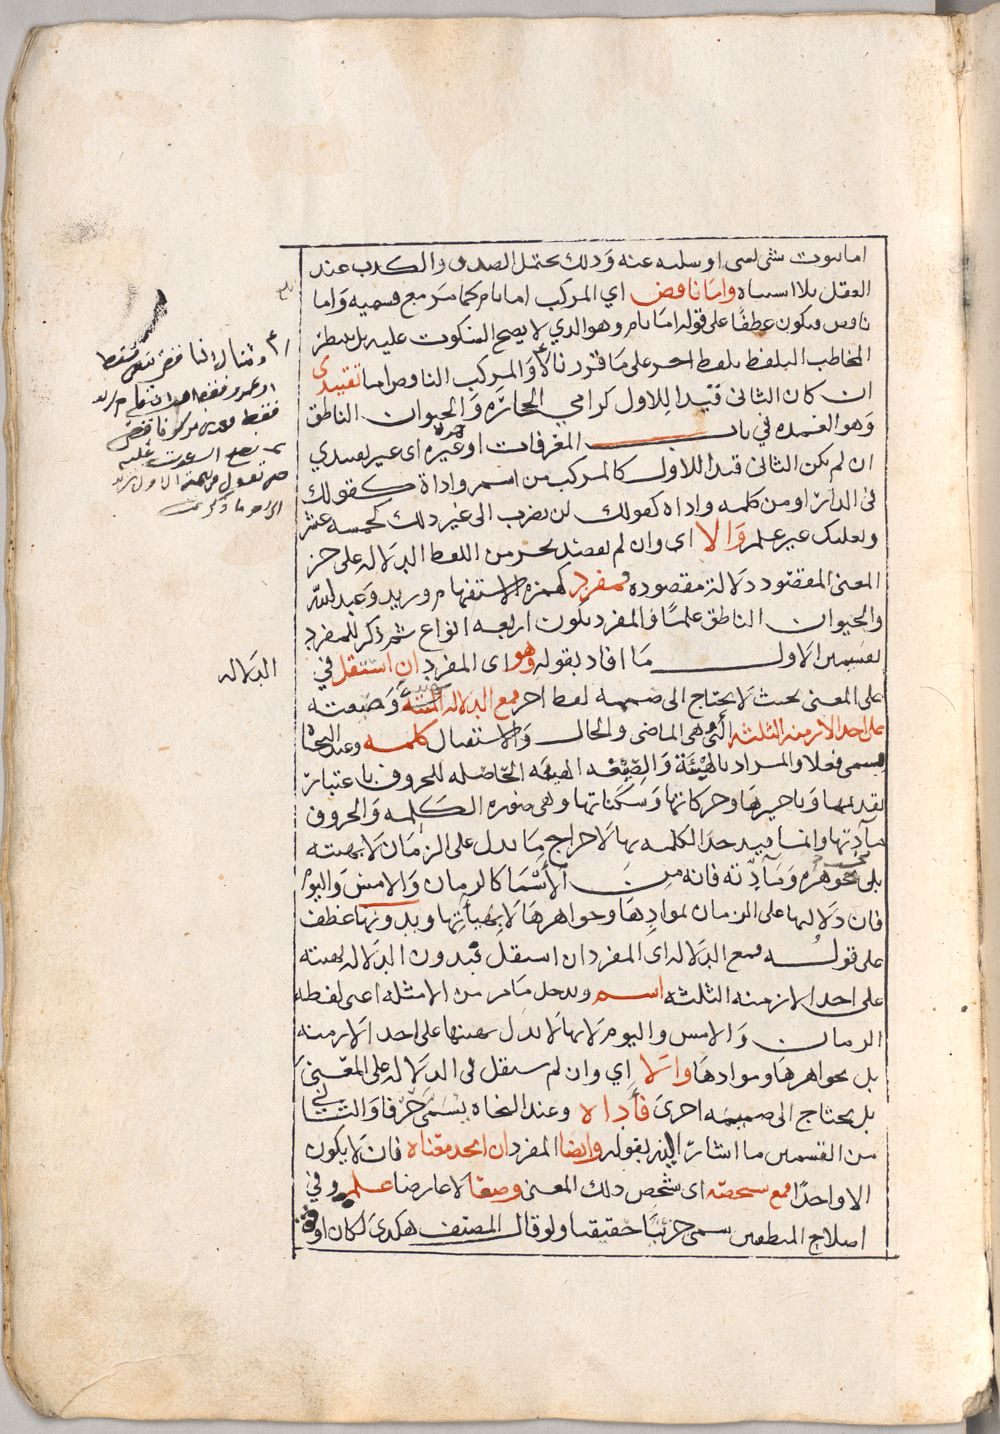 اما ثبوت شى لشى او سلبه عنه وذلك يحتمل الصدق والكذب عند
العقل بلا اشتباه واما ناقص اي المركب اما تام كما مر مع قسميه واما
ناقص ويكون عطفا على قوله اما تام وهو الذي لا يصح السكوت عليه بل ينتظر
المخاطب التلفظ بلفظ اخر على ما قررناه والمركب الناقص اما تقييدي
ان كان الثانى قيدا للاول كرامي الحجارة والحيوان الناطق
وهو العمده في باب المعرفات او غيره اى غير تقييدي
ان لم يكن الثانى قيدا للاول كالمركب من اسم واداة كقولك
فى الدار او من كلمه واداه كقولك لن يضرب الى غير ذلك كخمسه عشر
وبعلبك غير علم والا اى وان لم يقصد بجز من اللفظ الدلاله على جز
المعنى المقصود دلالة مقصوده فمفرد كهمزه الاستفهام وزيد وعبد الله
والحيوان الناطق علما فالمفرد يكون اربعه انواع ثم ذكر للمفرد
تقسيمين الاول ما افاد بقوله وهو اى المفرد ان استقل في
الدلاله
على المعنى بحيث لا يحتاج الى ضميمه لفظ اخر فمع الدلاله بهيئته وصيغته
على احد الازمنه الثلثه التي هى الماضى والحال والاستقبال كلمه وعند النحاة
يسمى فعلا والمراد بالهيئة والصيغه الهيئه الحاصله للحروف باعتبار
تقديمها وتاخيرها وحركاتها وسكناتها وهى صورة الكلمه والحروف
مادتها وانما قيد حد الكلمه بها لاخراج ما يدل على الزمان لا بهيئته
بل بجوهره ومادته فانه من الاسما كالزمان والامس واليوم
فان دلالتها على الزمان لموادها وجواهرها لا بهيأتها وبدونها عطف
على قوله فمع الدلاله اى المفرد ان استقل فبدون الدلاله بهيئته
على احد الازمنه الثلثه اسم ويدخل ما مر من الامثله اعنى لفظه
الزمان والامس واليوم لانها لا تدل بهيئتها على احد الازمنه
بل بجواهرها وموادها والا اي وان لم يستقل فى الدلاله على المعنى
بل يحتاج الى ضميمه اخرى فأداه وعند النحاه يسمى حرفا والثاني
من القسمين ما اشار اليه بقوله وايضا المفرد ان اتحد معناه فان لا يكون
الا واحدا فمع تشخصه اى تشخص ذلك المعنى وضعا لا عارضا علم وفي
اصلاح المنطقيين يسمى جزئيا حقيقيا ولو قال المصنف هكذى لكان اوفق